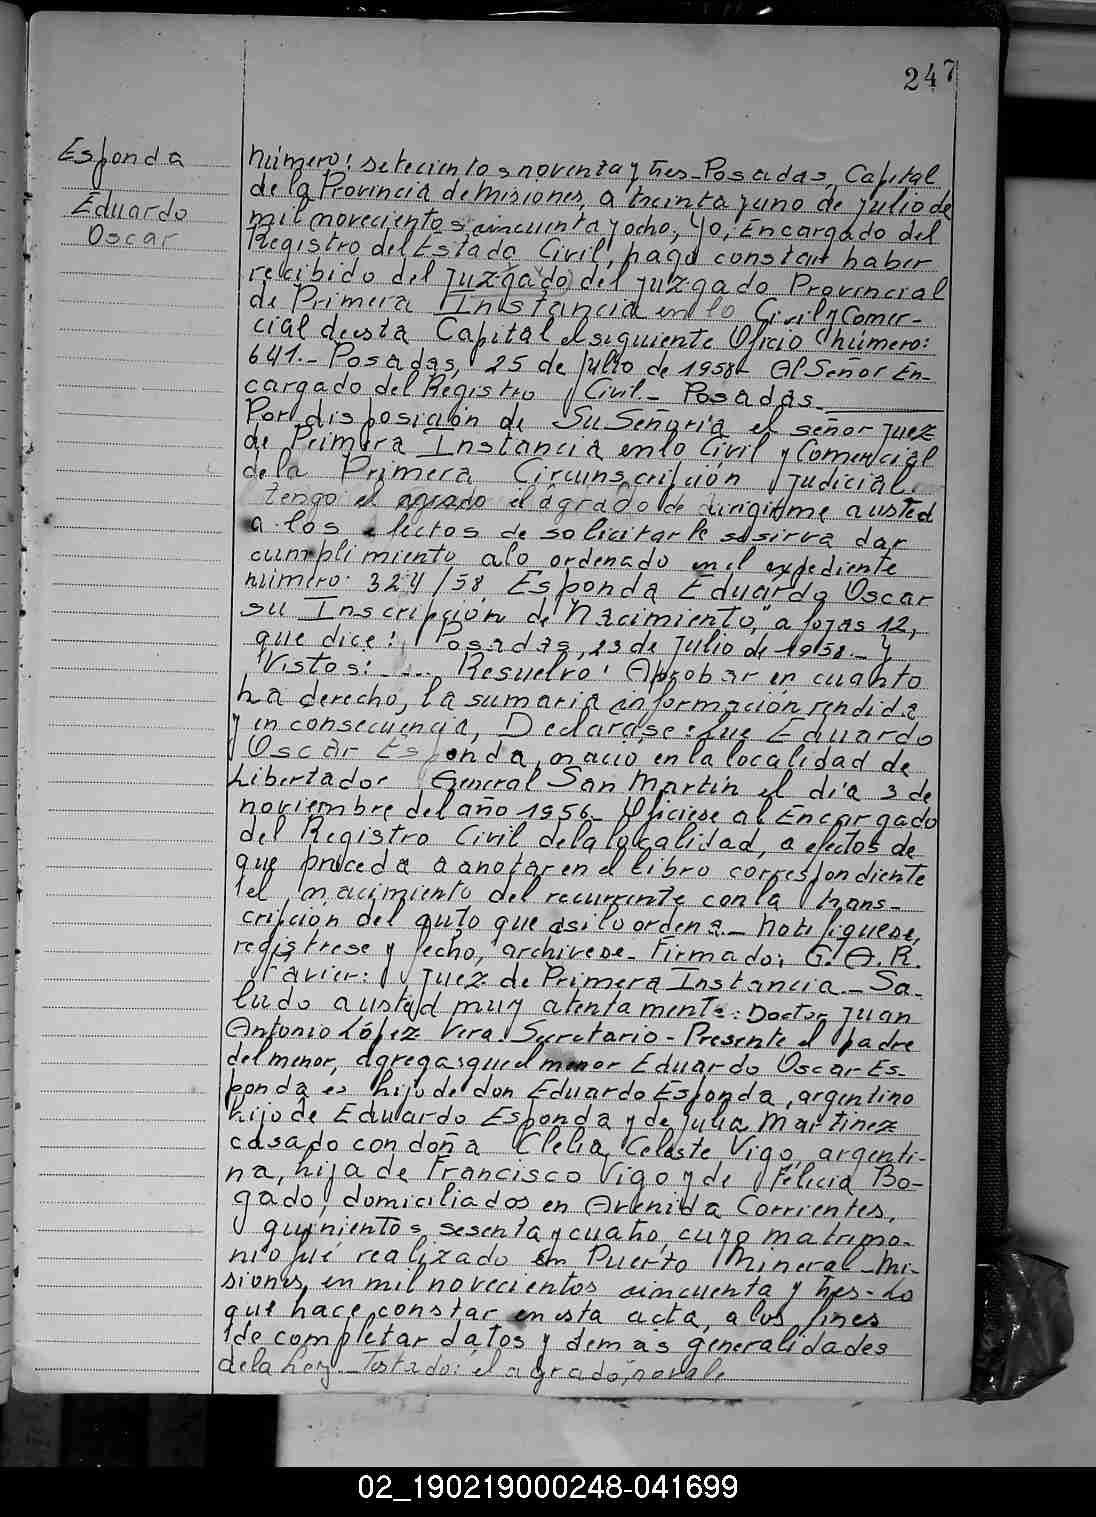 247
Esponda
Eduardo
Oscar
número: setecientos noventa y tres - Posadas, Capital
de la Provincia de Misiones, a treinta y uno de julio de
mil novecientos cincuenta y ocho, Yo, Encargado del
Registro del Estado Civil, hago constar haber
recibido del juzgado) del juzgado Provincial
de Primera Instancia en lo Civil y Comer-
cial de esta Capital el siguiente Oficio número:
641.- Posadas, 25 de julio de 1958.- Al Señor En-
cargado del Registro Civil.- Posadas.
Por disposición de Su Señoría el señor juez
de Primera Instancia en lo Civil y Comercial
de la Primera Circunscripción judicial.
tengo el agrado el agrado de dirigirme a usted
a los efectos de solicitarle se sirva dar
cumplimiento a lo ordenado en el expediente
número: 324/58 Esponda Eduardo Oscar
su Inscripción de Nacimiento," a fojas 12,
que dice: Posadas, 23 de julio de 1958.- Y
Vistos: .... Resuelvo: Aprobar en cuanto
ha derecho, la sumaria información rendida
y en consecuencia, Declarase: Que Eduardo
Oscar Esponda, nació en la localidad de
Libertador General San Martín el día 3 de
noviembre del año 1956.- Oficiese al Encargado
del Registro Civil de la localidad, a efectos de
que proceda a anotar en el libro correspondiente
el nacimiento del recurrente con la trans-
cripción del auto que asi lo ordena.- Notifiquese,
registrese y fecho, archivese.- Firmado: G. A. R.
Favier: Juez de Primera Instancia.- Sa-
ludo a usted muy atentamente: Doctor Juan
Antonio López Vera. Secretario - Presente el padre
del menor, agrega que el menor Eduardo Oscar Es-
ponda es hijo de don Eduardo Esponda, argentino
hijo de Eduardo Esponda y de Julia Martinez
casado con doña Clelia Celeste Vigo, argenti-
na, hija de Francisco Vigo y de Felicia Bo-
gado, domiciliados en Avenida Corrientes,
quinientos sesenta y cuatro, cuyo matrimo-
nio fué realizado en Puerto Mineral - Mi-
siones, en mil novecientos cincuenta y tres.- Lo
que hace constar en esta acta, a los fines
de completar datos y demás generalidades
de la Ley.- Testado: el agrado, no vale
02_190219000248-041699